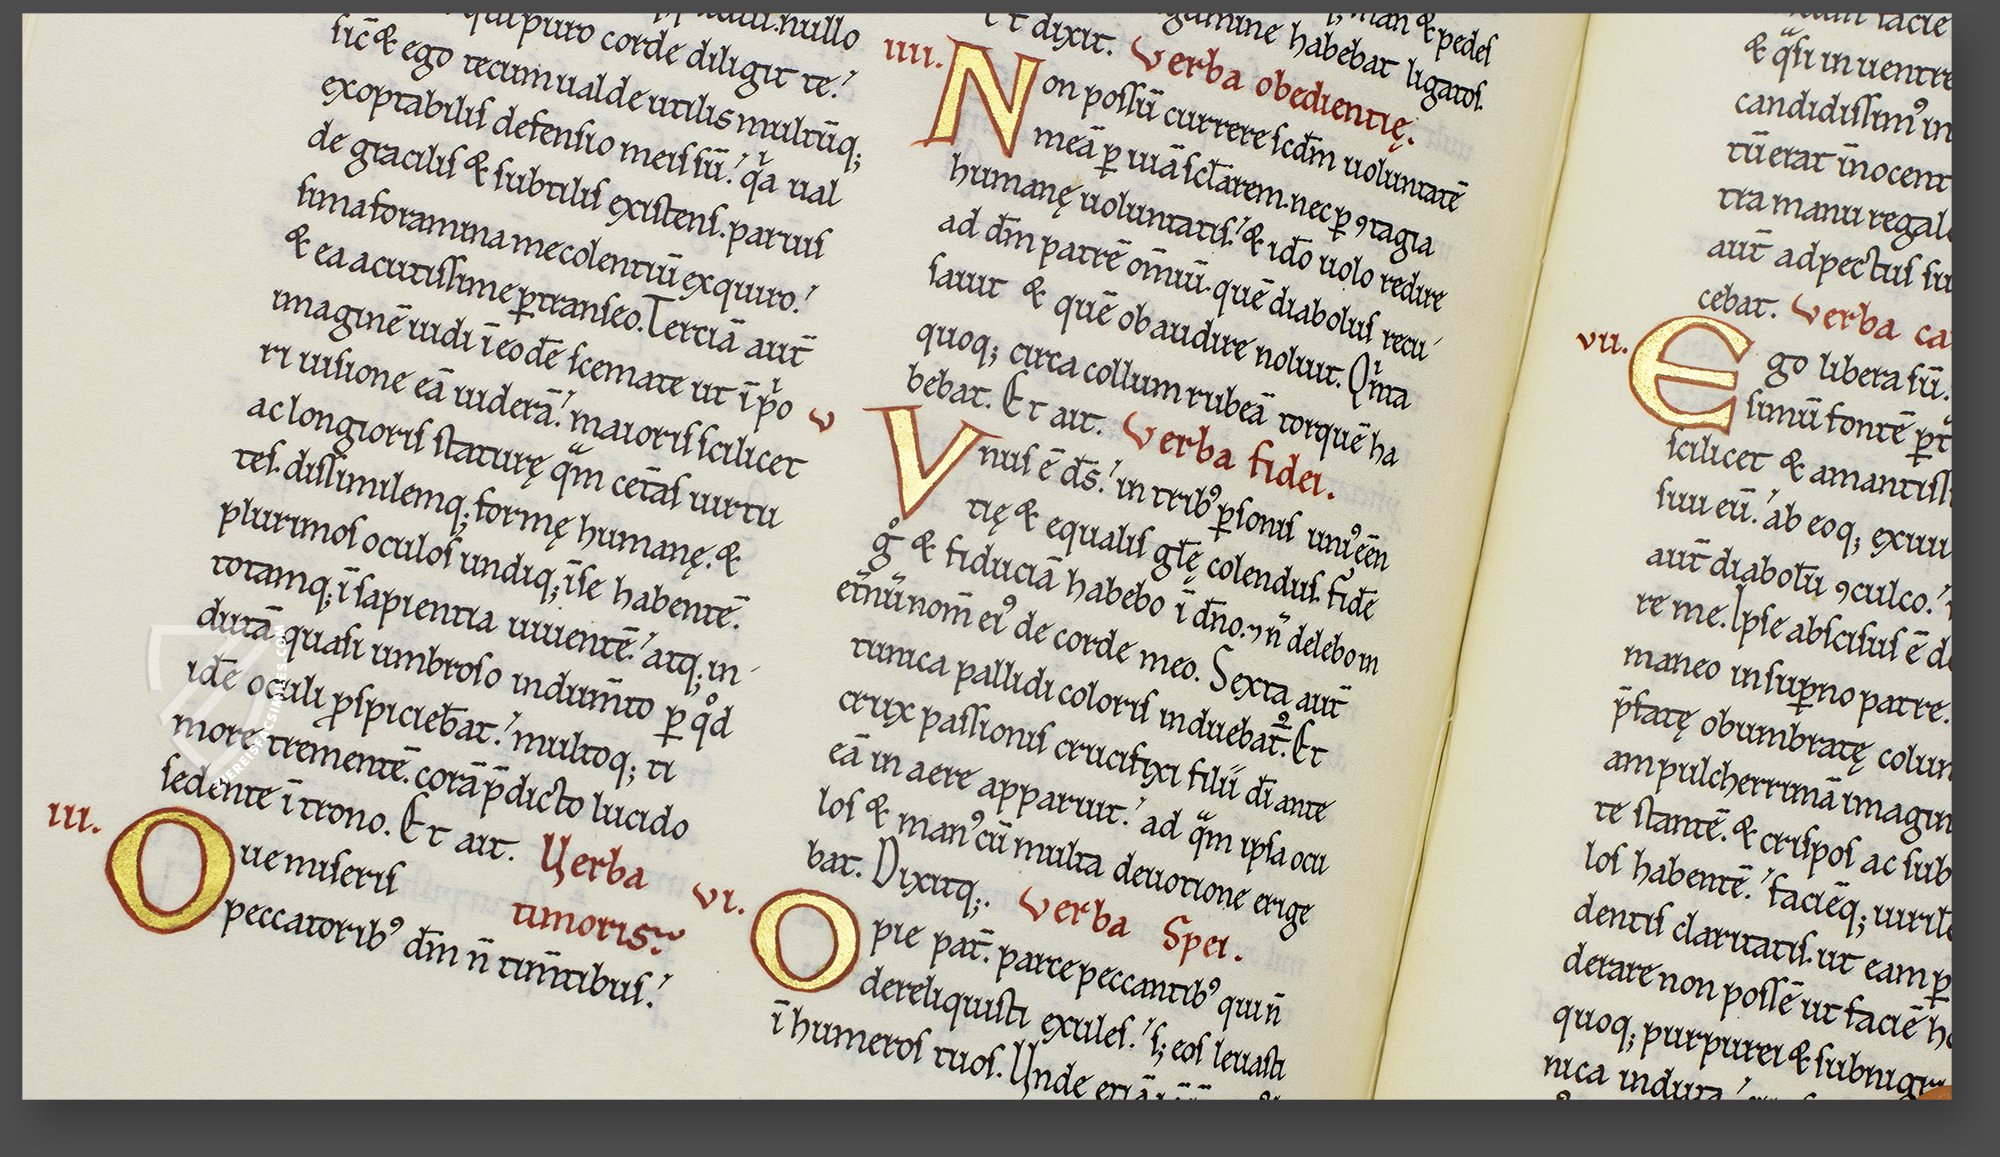 qui puro corde diligit te.
sic & ego tecum ualde utilis multūq;
exoptabilis defensio meis sū. qͥa ual
de gracilis & subtilis existens. paruis
sima foramina me colentiū exquiro.
& ea acutissime ꝑtranseo. Terciā aut̄
imaginē uidi ī eodē scemate ut ī pͥo
ri uisione eā uiderā. maioris scilicet
ac longioris staturę qᷓm cet̄as uirtu
tes. dissimilemq; formę humanę. &
plurimos oculos undiq; ī se habentē.
totamq; ī sapientia uiuentē. atq; in
dutā quasi umbroso indum̄to ꝑ qͦd
idē oculi ꝑspicieb̄at. multoq; ti
more trementē. corā p̄dicto lucido
sedente ī trono. Et ait. Verba
timoris.
III. O ue miseris
peccatorib⁹ dm̄ n̄ tim̄tibus.
man & pedes
gumine habebat ligatos.
Et dixit. Verba obedientię.
IIII. Non possū currere scdm̄ uoluntatē
meā ꝑ uiā sc̄larem. nec ꝑ ꝯtagia
humanę uoluntatis. & idō uolo redire
ad dm̄ patrē om̄iū. quē diabolus recu
sauit & quē obaudire noluit. Qͥnta
quoq; circa collum rubeā torquē ha
bebat. Et ait. Verba fidei.
V Vnus ē ds̄. in trib⁹ ꝑsonis uni⁹ eēn
tię & equalis glę̄ colendus. fidē
gͦ & fiduciā habebo ī dn̄o. ⁊ n̄ delebo in
et̄nū nom̄ ei⁹ de corde meo. Sexta aut̄
tunica pallidi coloris induebat᷑. Et
crux passionis crucifixi filii dī ante
eā in aere apparuit. ad qᷓm ipsa ocu
los & man⁹ cū multa deuotione erige
bat. Dixitq;. Verba Spei.
VI. O pie pat̄. parce peccantib⁹ qui n̄
dereliquisti exules. s; eos leuasti
ī humeros tuos. Unde etiā
facie
& qᷓsi in uentre
candidissim⁹ in
tū erat īnocent
tra manu regal
aut̄ adpectus su
cebat. Verba ca
VII. Ego libera sū.
simū fontē ꝑt̄
scilicet & amantiss
suū eū. ab eoq; exiui
aut̄ diabolū ꝯculco.
re me. Ipse abscisus ē d
maneo in suꝑno patre.
p̄fatę obumbratę colun
am pulcherrimā imagin
te stantē. & crispos ac sub
los habentē. faciēq; uiril
dentis claritatis. ut eam ꝑ
derare non possē ut faciē ho
quoq; purpurei & subnigri
nica induta.